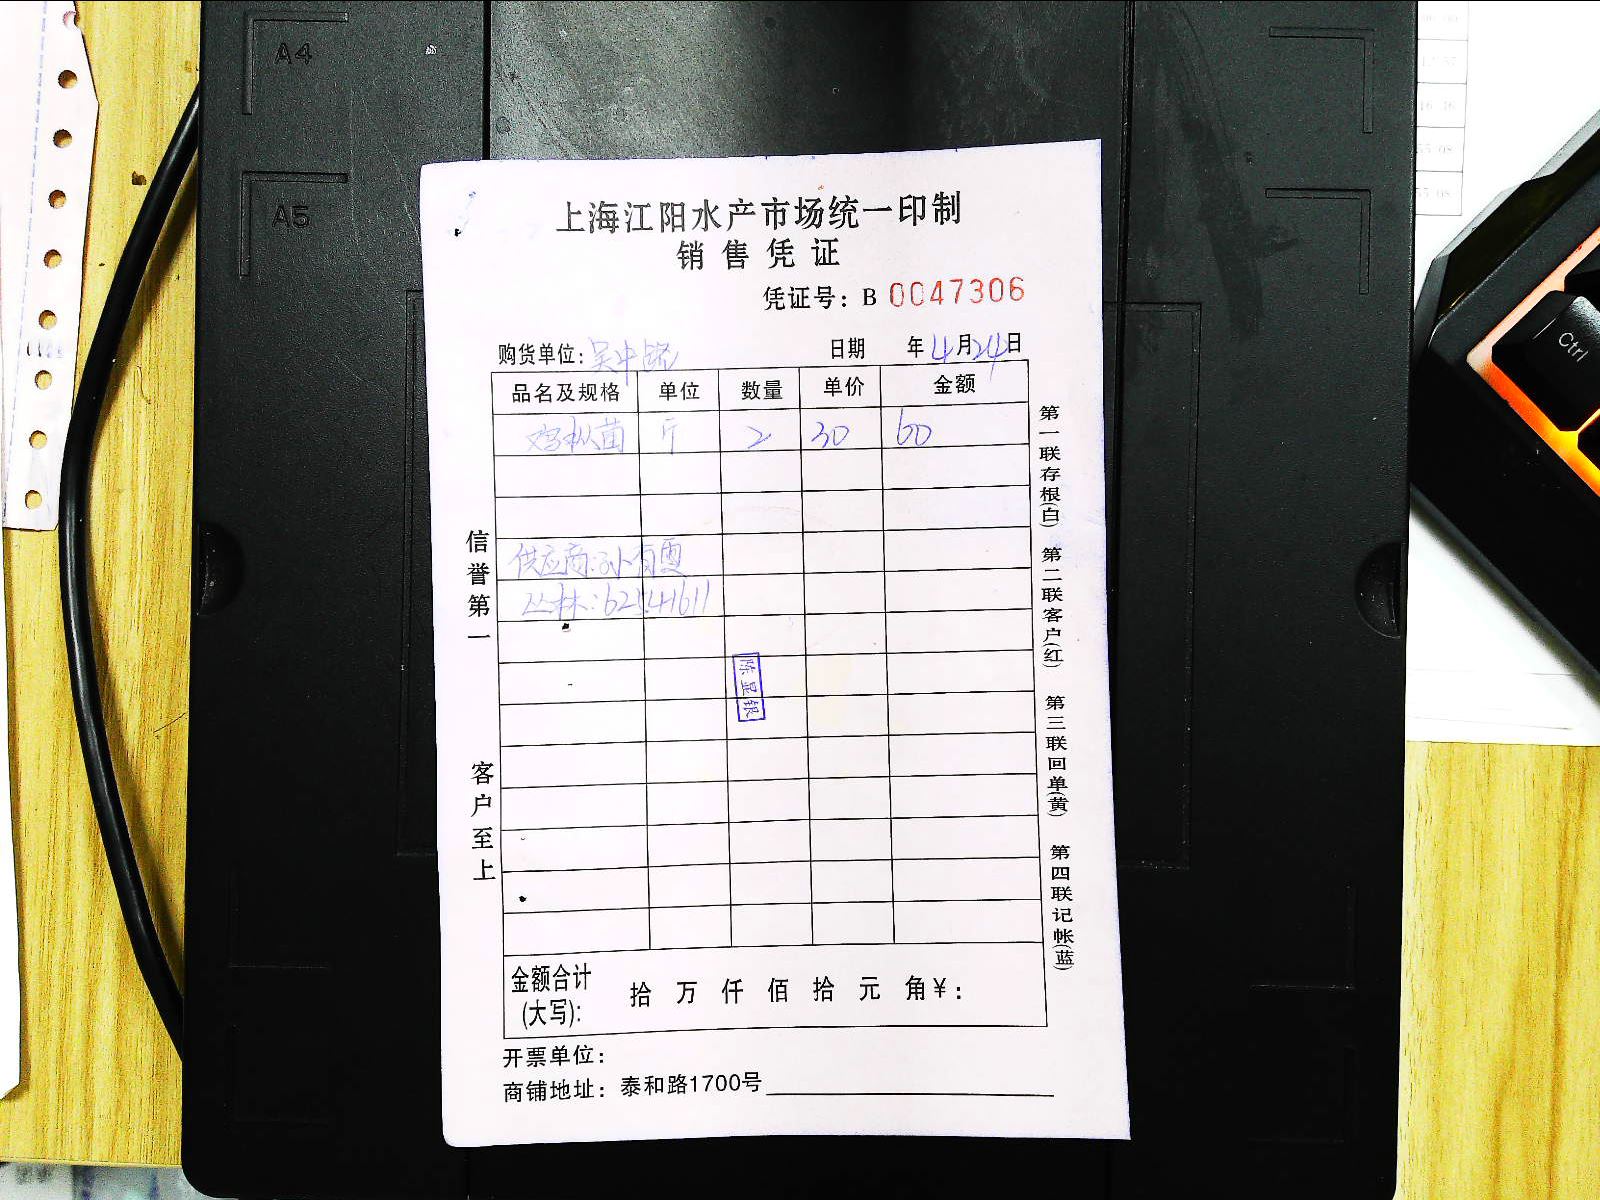 A4
A5
上海江阳水产市场统一印制
销售凭证
凭证号：B 0047306
购货单位：吴中路 日期 年4月24日
品名及规格 单位 数量 单价 金额
鸡枞菌 斤 2 30 60
供应商：孙有雷
丛林：62541611
陈显银
信誉第一
客户至上
第一联存根(白)
第二联客户(红)
第三联回单(黄)
第四联记帐(蓝)
金额合计
(大写)： 拾 万 仟 佰 拾 元 角￥：
开票单位：
商铺地址：泰和路1700号
Ctrl